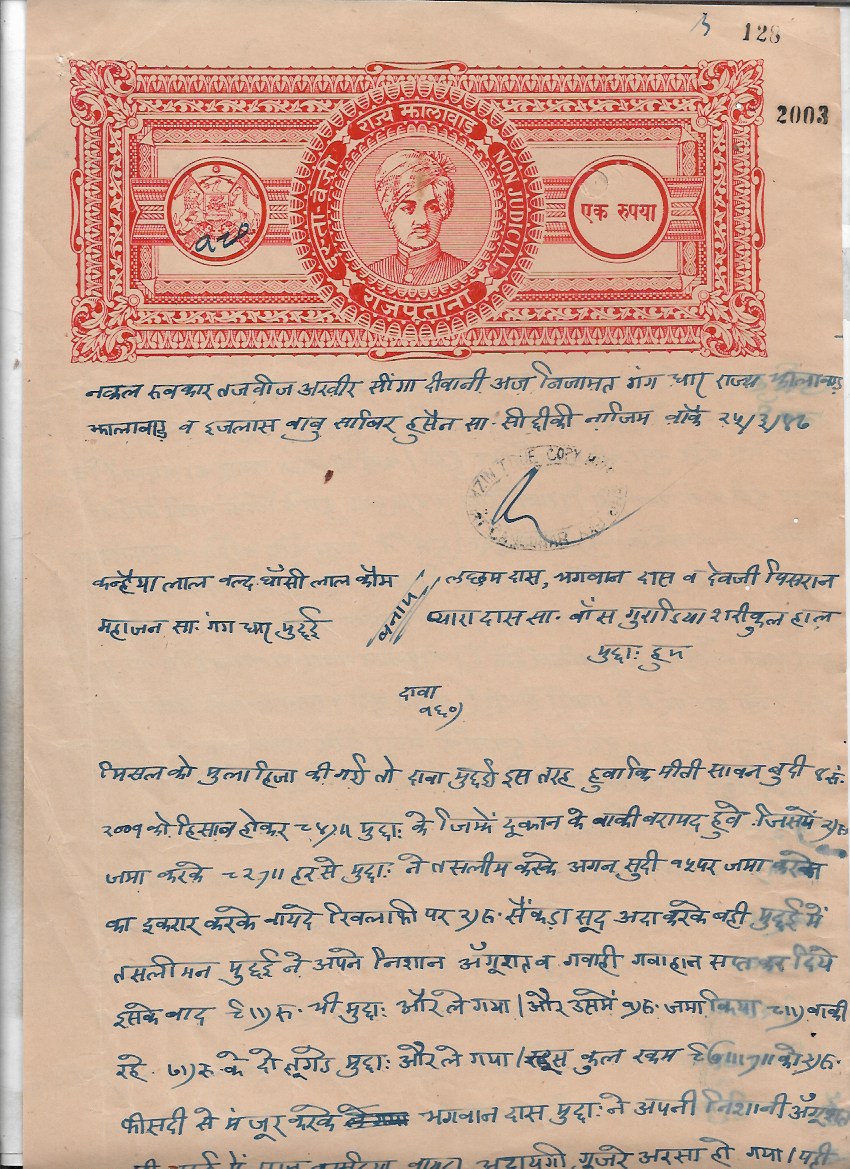 128
2003
राज्य झालावाड़
दस्ता-वेजी
NON JUDICIAL
एक रुपया
राजपूताना
नकल रुवकार तजवीज अखीर सींगा दीवानी अज निजामत गंग धार राज्य झालावाड़
झालावाड़ व इजलास बाबु साबिर हुसैन सा. सीद्दीकी नाजिम वाकै २५/३/४७
TRUE COPY
कन्हैया लाल वल्द घाँसी लाल कौम
महाजन सा. गंग धार मुद्दई
बनाम
लछमन दास, भगवान दास व देवजी पिसरान
प्यारा दास सा. बाँस गुराडिया शरीकुल हाल
मुद्दा: हुम
दावा
१६०)
मिसल को मुलाहिजा की गई तो दावा मुद्दई इस तरह हुवा कि मीती सावन बुदी ४ सं.
२००१ को हिसाब होकर मुद्दा: के जिमे दूकान के बाकी बरामद हुवे जिसमें
जमा करके हर से मुद्दा: ने तसलीम करके अगन सुदी १५ पर जमा करने
का इकरार करके वायदे खिलाफी पर २)रु. सैंकड़ा सूद अदा करके बही मुद्दई में
तसलीमन मुद्दई ने अपने निशान अँगूशत व गवाही गवाहान सप्त कर दिये
इसके बाद रु. घी मुद्दा: और ले गया। और उसमें १)रु. जमा किया बाकी
रहे ७)रु के दो लूगड़े मुद्दा: और ले गया। इस कुल रकम को २)रु.
फीसदी से मंजूर करके भगवान दास मुद्दा: ने अपनी निशानी अँगूशत
अदायगी गूजरे अरसा हो गया।